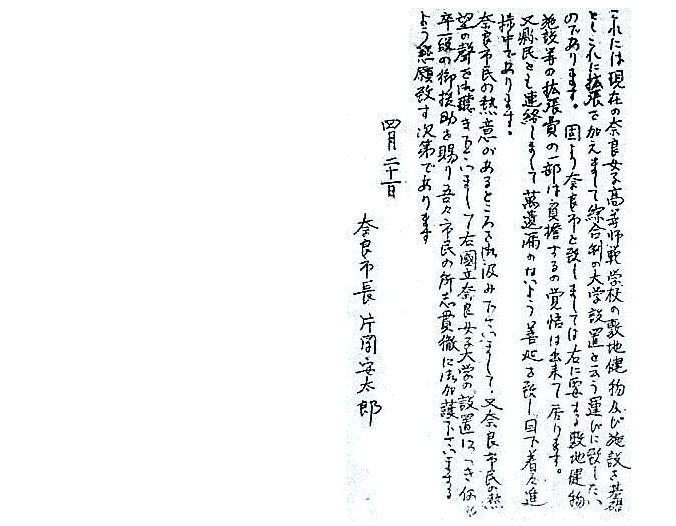 これには現在の奈良女子高等師範学校の敷地建物及び施設を基礎
としこれに拡張を加えまして綜合制の大学設置と云う運びに致したい
のであります。固より奈良市と致しましては右に要する敷地建物
施設等の拡張費の一部は負擔するの覚悟は出来て居ります。
又縣民とも連絡しまして萬遺漏のないよう善処を致し目下着々進
捗中であります。
奈良市民の熱意があるところを御汲み下さいまして、又奈良市民の熱
望の聲を御聴き下さいまして右國立奈良女子大学の設置につき何
卒一段の御援助を賜り吾々市民の所志貫徹に御加護下さいまする
よう懇願致す次第であります
四月二十一日
奈良市長 片岡安太郎